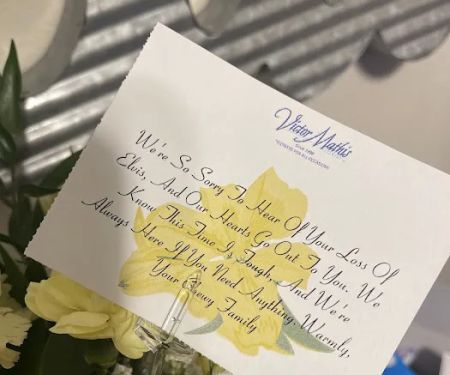 Victor Mathis
We're So Sorry To Hear Of Your Loss Of
Elvis, And Our Hearts Go Out To You. We
Know This Time Is Tough, And We're
Always Here If You Need Anything. Warmly,
Your Chewy Family